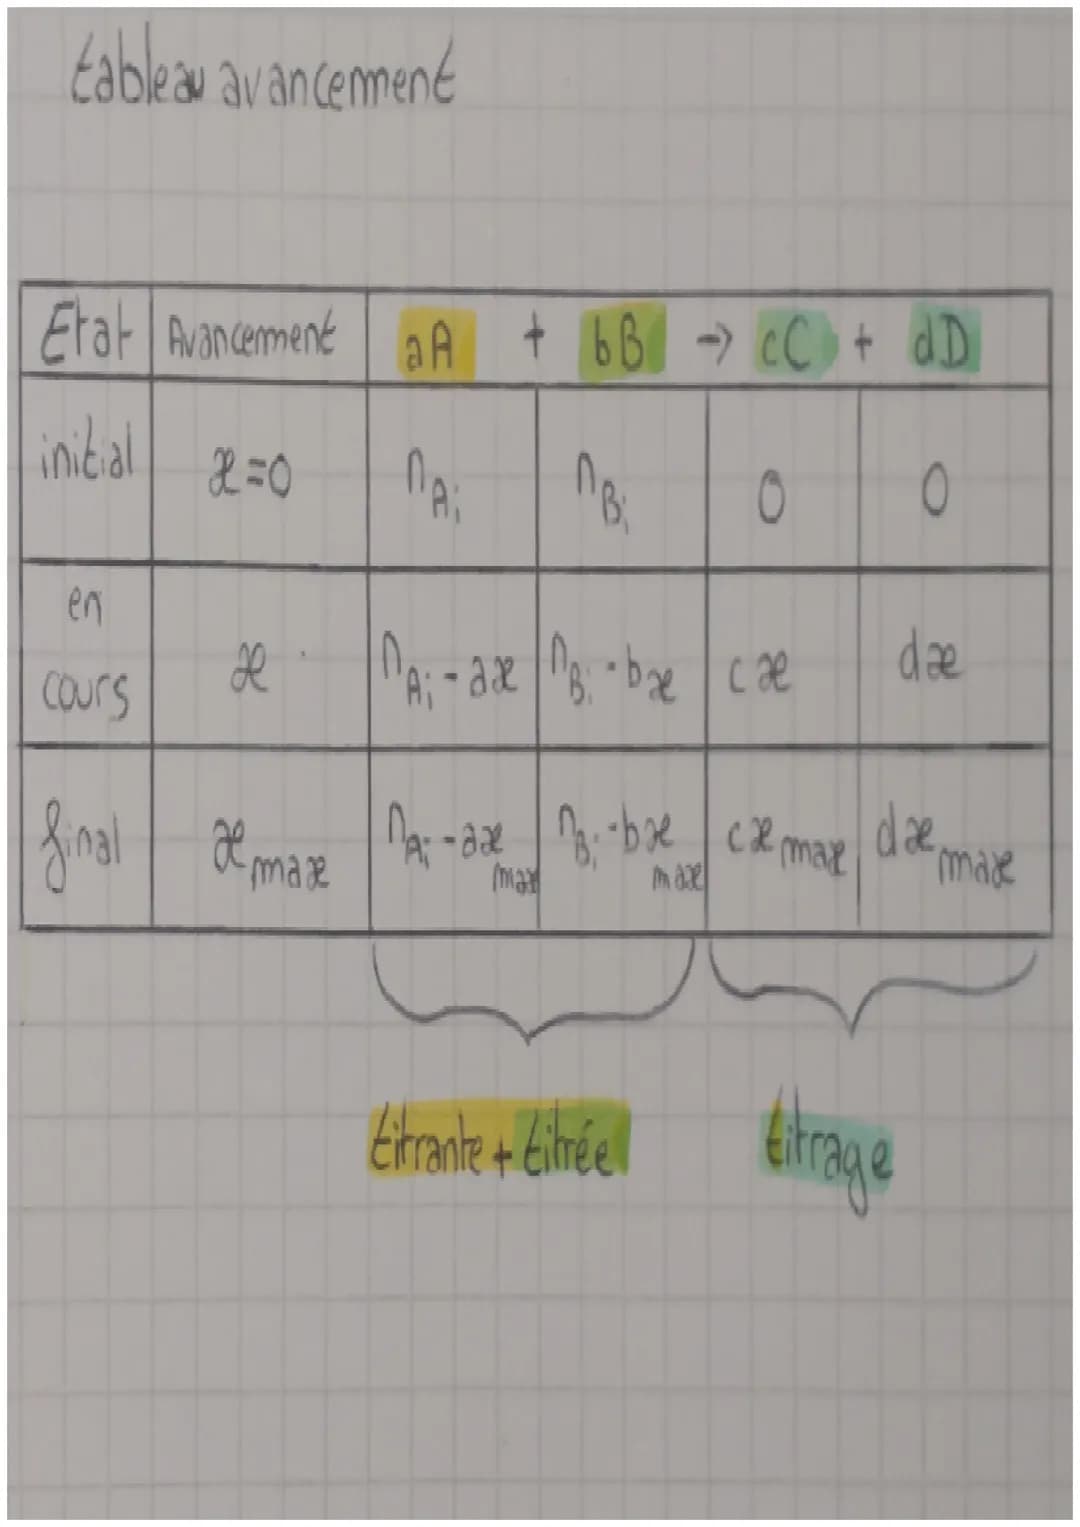 tableau avancement
Etat Avancement aA + bB → cC + dD
initial x=0 nAi nBi 0 0
en cours x nAi - ax nBi - bx cx dx
final xmax nAi - axmax nBi - bxmax cxmax dxmax
titrante + titrée titrage